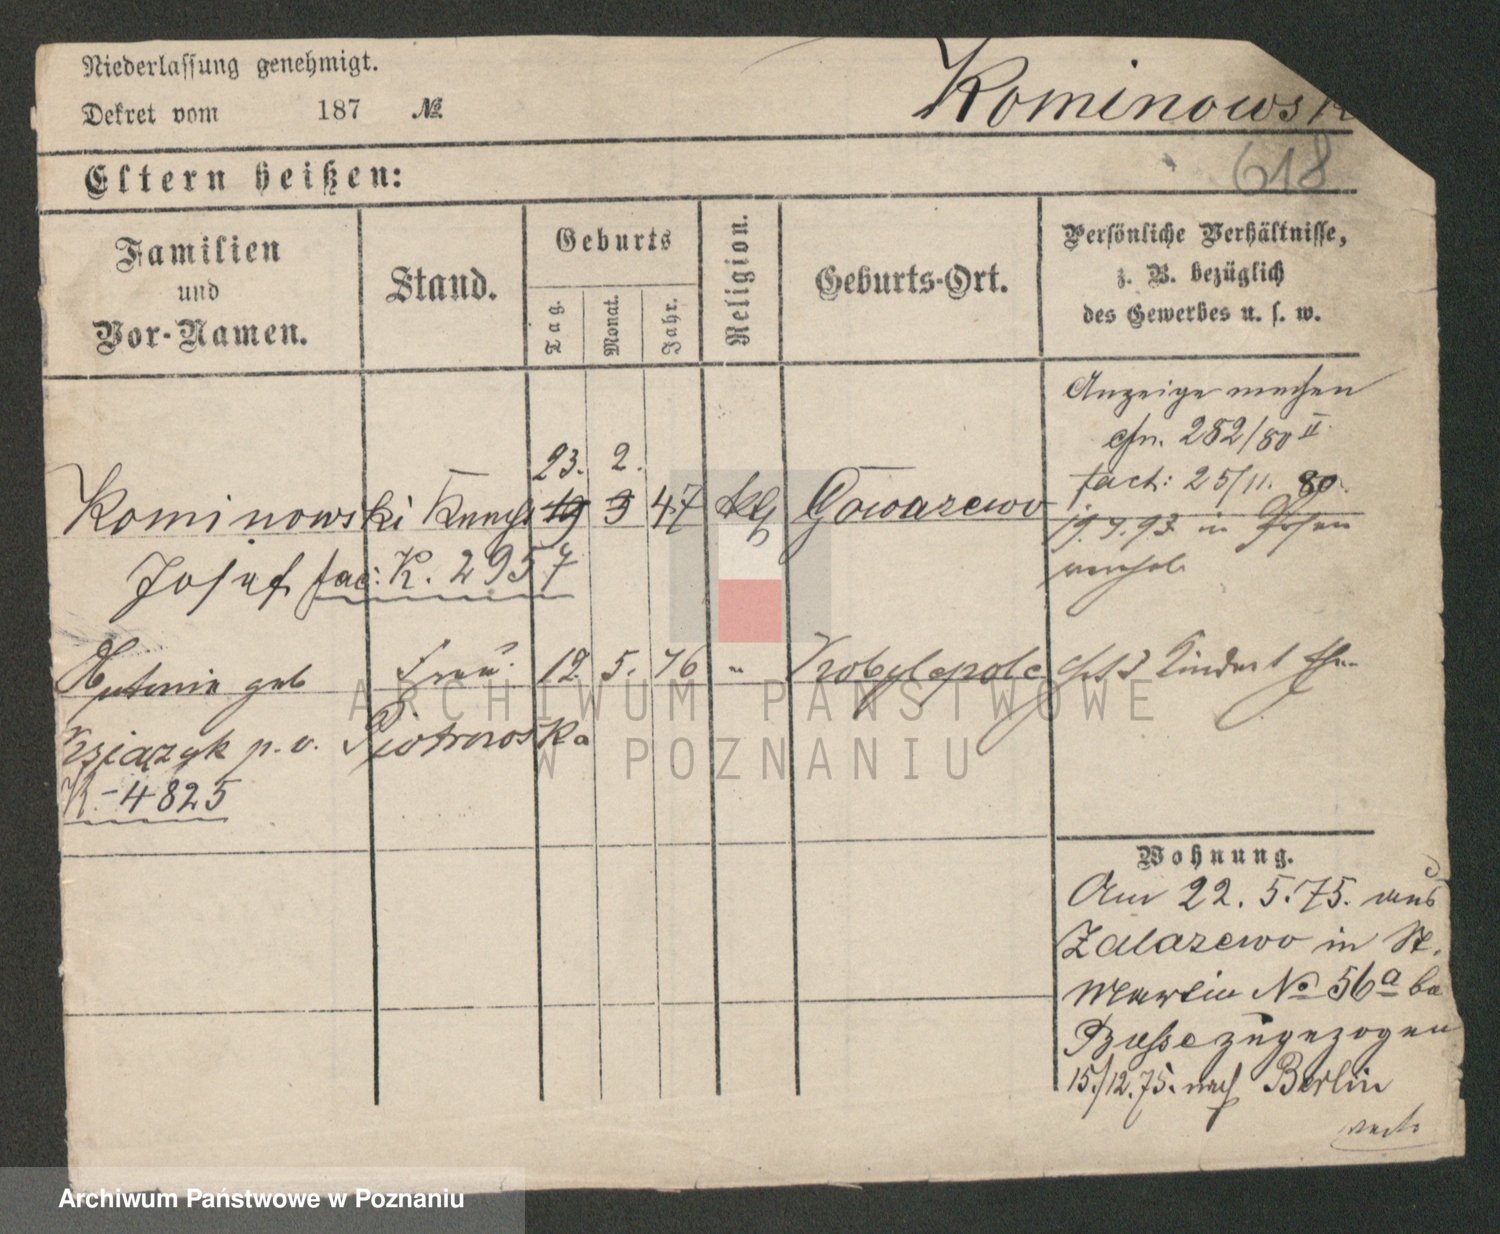 Niederlassung genehmigt.
Dekret vom 187 №
Kominowsk
618
Eltern heißen:
Familien
und
Vor-Namen.
Stand.
Geburts
Tag.
Monat.
Jahr.
Religion.
Geburts-Ort.
Persönliche Verhältnisse,
z. B. bezüglich
des Gewerbes u. s. w.
Anzeige machen
282/80 II
fact: 25/11. 80.
23. 2.
Kominowski Knecht 19 3 47 kth Gowarzewo
19.4.93 in Posen
Josef fac: K. 2957
Antonie geb Frau 12. 5. 76 " Kobylepole
Książyk p. v. Piotrowska
K-4825
Wohnung.
Am 22. 5. 75. aus
Zalazewo in St.
Martin No 56a bei
Busse zugezogen
15/12.75. nach Berlin
ARCHIWUM PAŃSTWOWE
W POZNANIU
Archiwum Państwowe w Poznaniu